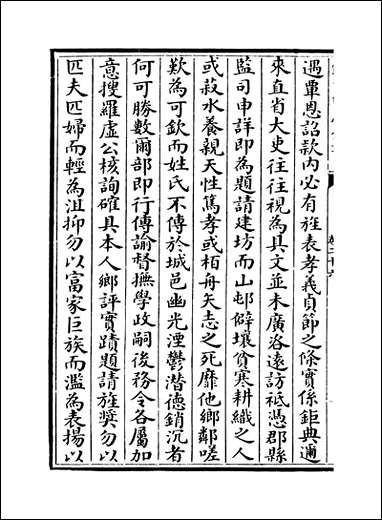 遇覃恩詔款內必有旌表孝義貞節之條實係鉅典邇
來直省大吏往往視為具文並未廣洛遠訪祗憑郡縣
監司申詳即為題請建坊而山邨僻壤貧寒耕織之人
或菽水養親天性篤孝或栢舟矢志之死靡他鄉鄰嗟
歎為可欽而姓氏不傳於城邑幽光湮鬱潛德銷沉者
何可勝數爾部即行傳諭督撫學政嗣後務令各屬加
意搜羅虛公核詢確具本人鄉評實蹟題請旌獎勿以
匹夫匹婦而輕為沮抑勿以富家巨族而濫為表揚以